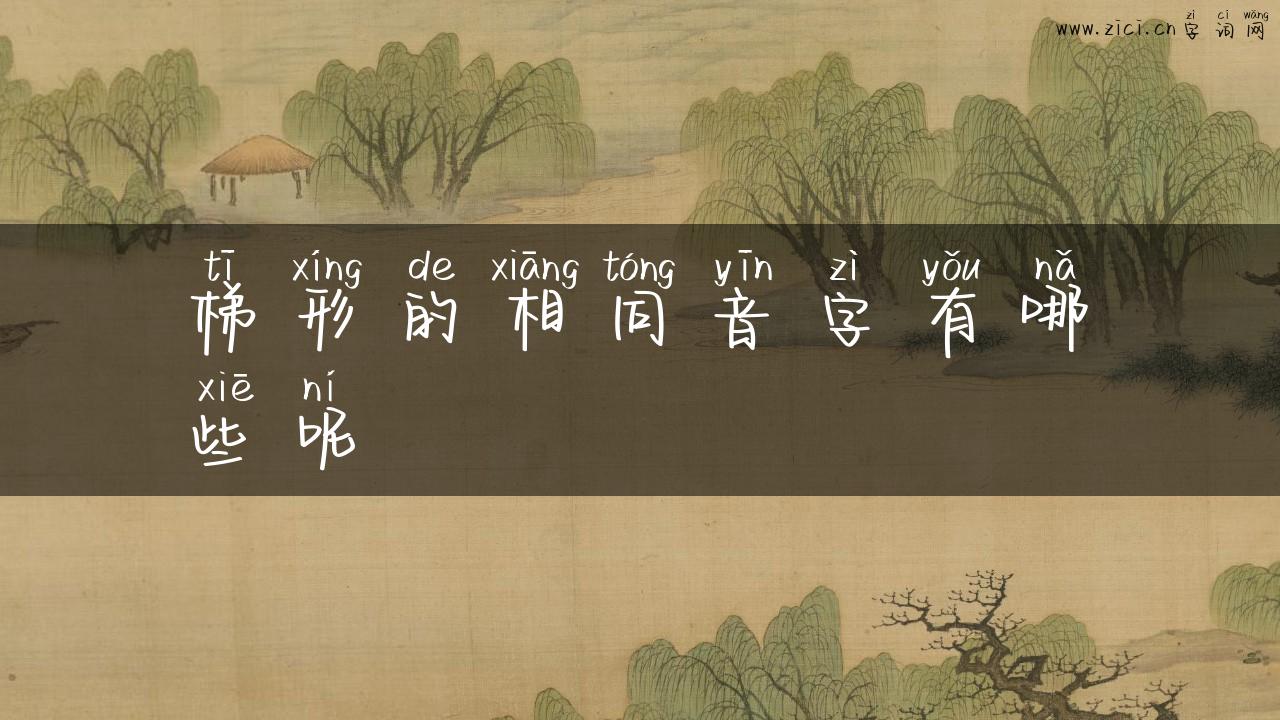 zì cí wǎng
www.zici.cn 字 词 网
tī xíng de xiāng tóng yīn zì yǒu nǎ
梯 形 的 相 同 音 字 有 哪
xiē ní
些 呢